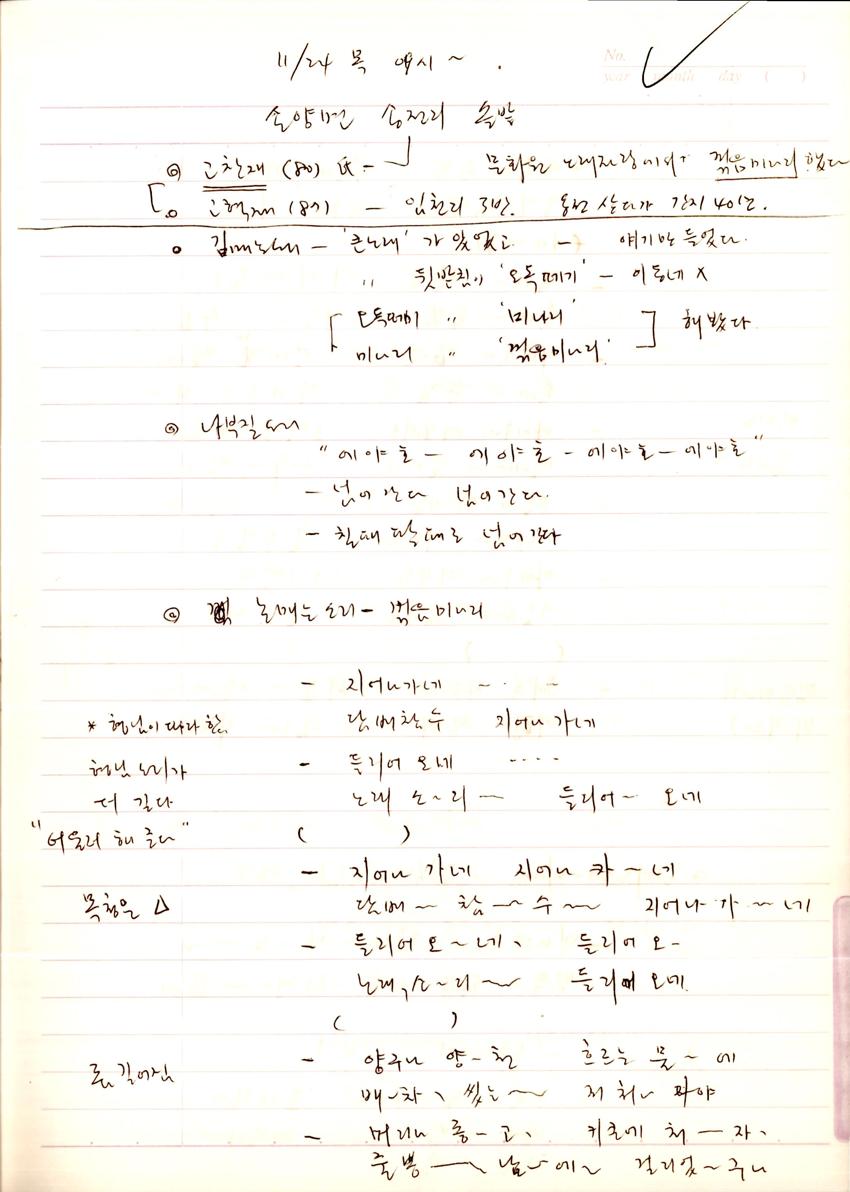 11/24 목 ~ .
No.
year month day ( )
손양면 송전리 솔밭
◎ 고찬재 (80) 氏 - 문화원 노래자랑에서 꺾음미나리 했다
고혁재 (87) - 임천리 3반. 살다가 간지 40년.
김매노래 - '큰노래'가 있었고 - 얘기만 들었다.
〃 뒷받침이 '오독떼기' - 이동네 X
[ 오독떼기 〃 '미나리' ] 해봤다
미나리 〃 '꺾음미나리'
◎ 나부질소리
"에야호 - 에이야호 - 에야호 - 에야호"
- 넘어간다 넘어간다.
- 칠때 딱때로 넘어간다
◎ 논매는소리 - 꺾음미나리
- 지어나가네 ~ · -
* 형님이 따라함 담배참수 지어나 가네
형님 소리가 - 들리어 오네 ····
더 길다 노래 소~리 — 들리어~ 오네
"어울려 해 준다" ( )
- 지어나 가네 지어나 가~네
목청은 △ 담배~ 참~수~ 지어나 가~네
- 들리어 오~네、 들리어 오-
노래、소~리~ 들리어 오네.
( )
- 양구나 양-천 흐르는 물~에
배~차、씻는~ 저 처나 봐야
- 머리나 좋-고、 키초에 처—자、
줄뽕—、남~에~ 걸리었~구나